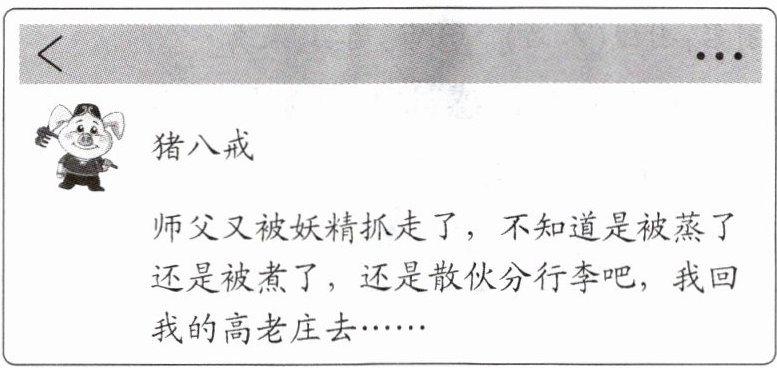 猪八戒
师父又被妖精抓走了，不知道是被蒸了
还是被煮了，还是散伙分行李吧，我回
我的高老庄去……